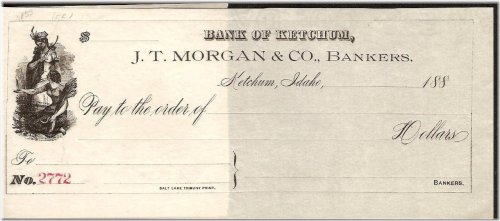 $ BANK OF KETCHUM,
J. T. MORGAN & CO., BANKERS.
Ketchum, Idaho, 188
Pay to the order of
Dollars
To
No. 2772
BANKERS.
SALT LAKE TRIBUNE PRINT.